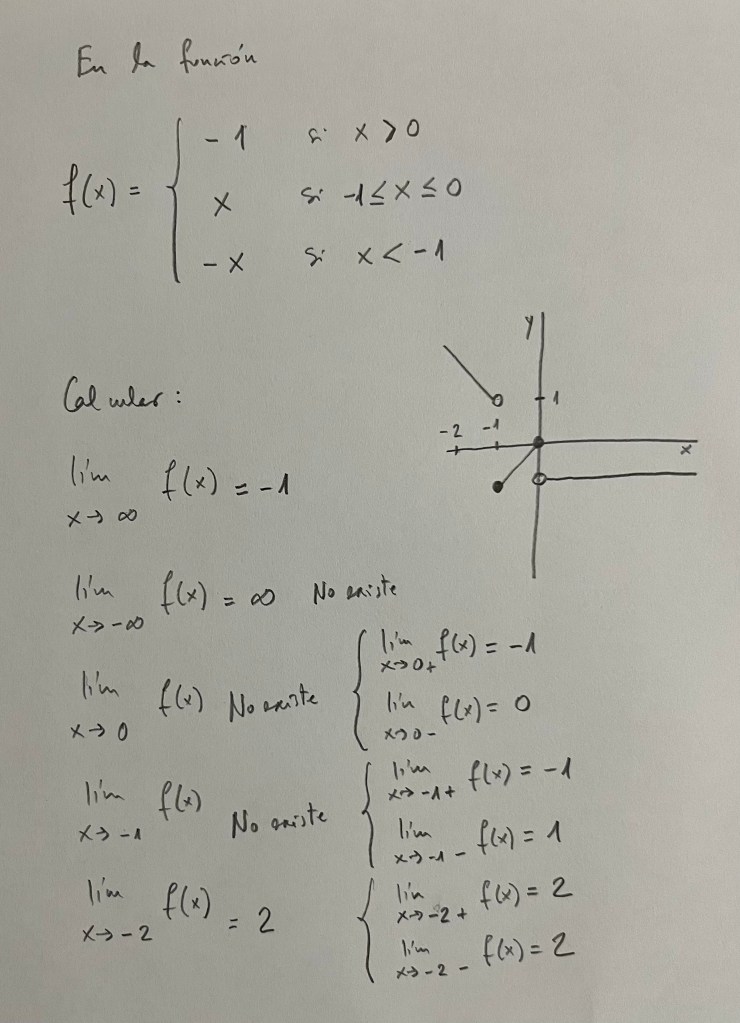 En la función
f(x) = { -1 si x > 0
x si -1 ≤ x ≤ 0
-x si x < -1
y
1
-2 -1
x
Calcular:
lím x→∞ f(x) = -1
lím x→-∞ f(x) = ∞ No existe
lím x→0 f(x) No existe { lím x→0+ f(x) = -1
lím x→0- f(x) = 0
lím x→-1 f(x) No existe { lím x→-1+ f(x) = -1
lím x→-1- f(x) = 1
lím x→-2 f(x) = 2 { lím x→-2+ f(x) = 2
lím x→-2- f(x) = 2